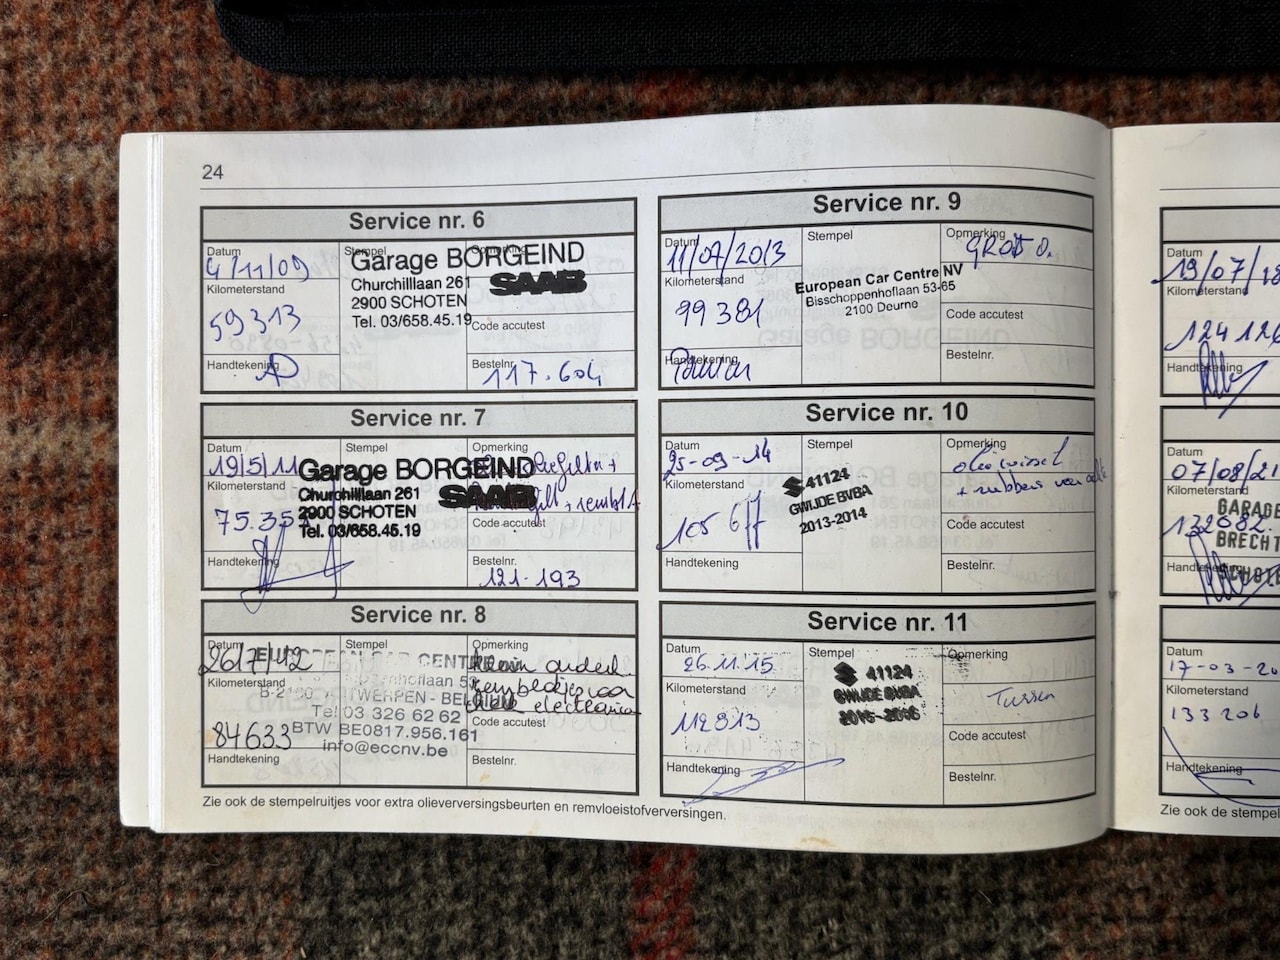 24
Service nr. 6
Datum
Stempel
Opmerking
4/11/09
Garage BORGEIND
SAAB
Churchilllaan 261
2900 SCHOTEN
Tel. 03/658.45.19
Kilometerstand
59313
Code accutest
Handtekening
Bestelnr.
117.604
Service nr. 7
Datum
Stempel
Opmerking
19/5/11
Garage BORGEIND
SAAB
Churchilllaan 261
2900 SCHOTEN
Tel. 03/658.45.19
Kilometerstand
75.357
Code accutest
Handtekening
Bestelnr.
121-193
Service nr. 8
Datum
Stempel
Opmerking
26/7/12
EUROPEAN CAR CENTRE
klein onderh.
remblokjes voor
B-2100 ANTWERPEN - BELGIUM
Tel 03 326 62 62
BTW BE0817.956.161
info@eccnv.be
Kilometerstand
84633
Code accutest
Handtekening
Bestelnr.
Service nr. 9
Datum
Stempel
Opmerking
11/07/2013
GROOT O.
European Car Centre NV
Bisschoppenhoflaan 53-65
2100 Deurne
Kilometerstand
99381
Code accutest
Handtekening
Bestelnr.
Service nr. 10
Datum
Stempel
Opmerking
25-09-14
oliewissel
+ rubbers van
41124
GWIJDE BVBA
2013-2014
Kilometerstand
105 6
Code accutest
Handtekening
Bestelnr.
Service nr. 11
Datum
Stempel
Opmerking
26.11.15
Tussen
41124
GWIJDE BVBA
2015-2016
Kilometerstand
112813
Code accutest
Handtekening
Bestelnr.
Zie ook de stempelruitjes voor extra olieverversingsbeurten en remvloeistofverversingen.
Datum
19/07/18
Kilometerstand
124126
Handtekening
Datum
07/08/21
Kilometerstand
132082
GARAGE
BRECHT
SCHOTE
Handtekening
Datum
17-03-20
Kilometerstand
133206
Handtekening
Zie ook de stempel